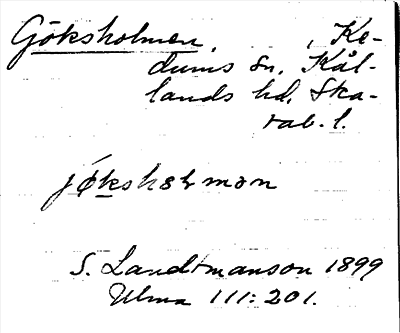 Göksholmen, , Ke-
dums sn, Kål-
lands hd, Ska-
rab. l.
jǿkshɵlmən
S. Landtmanson 1899
Ulma 111: 201.